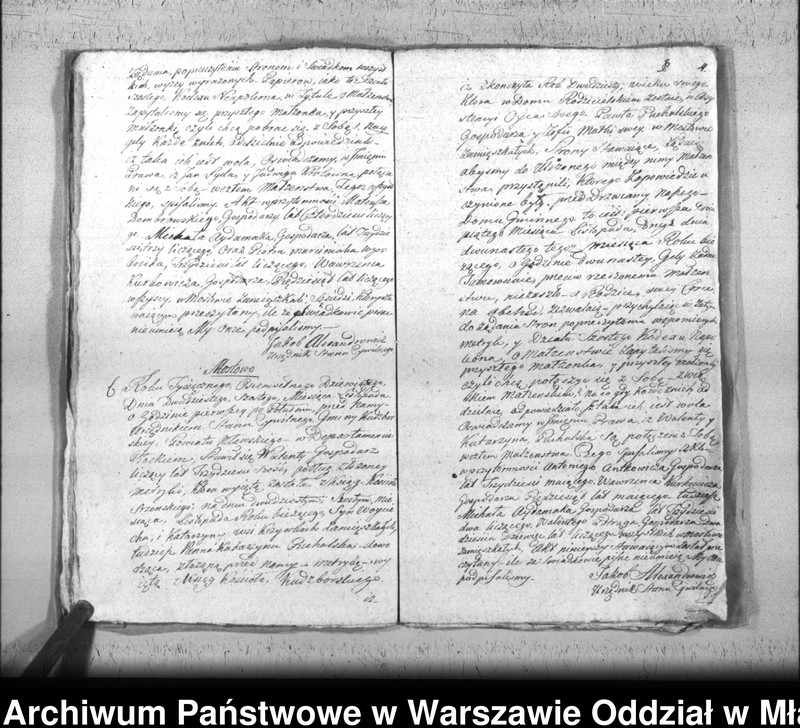 żądania, poprzeczytaniu Stronom i Świadkom wszyst
kich wyżey wyrażonych Papierów, iako to Działu
szóstego, Kodexu Napoleona, w Tytule o Małżeństwie
zapytaliśmy się przyszłego Małżonka, y przyszłey
małżonki, czyli chcą pobrać się z Sobą,
gdy każde z nich oddzielnie odpowiedziało
iż taka ich iest wola, Oświadczamy w Imieniu
Prawa, iż Jan Syska, y Jadwiga Królówna, połącze
ni są z sobą węzłem Małżeństwa, Czego wszyst
kiego, spisaliśmy Akt w przytomności Mateusza
Dombrowskiego, Gospodarza lat Czterdzieści liczące
go, Michała Aydamaka, Gospodarza, lat Trzydzieści
liczącego, Oraz Piotra
Trzydzieści lat liczącego, Wawrzeńca
Kurkowicza, Gospodarza, Pięćdziesiąt lat liczącego
wszyscy w Mostowie Zamieszkali
przeczytany, ile że Świadkowie pisać
nieumieią, My Onże podpisaliśmy.
Jakób Alexandrowicz
Urzędnik Stanu Cywilnego
Mostowo
6 Roku Tysiącznego, Osiemsetnego Dziewiątego,
Dnia Dwudziestego, Szóstego, Miesiąca Listopada
o Godzinie pierwszey po Południu, przed Nami
Urzędnikiem Stanu Cywilnego Gminy Kuczbor
skiey, Powiatu Mławskiego w Departamencie
Płockiem, Stawił się Walenty Gospodarz
liczący lat Trzydzieści Sześć, podług złożoney
metryki, która wyięta została z Xiąg Kościoła
na dniu dwudziestym, Szóstym, Mie
siąca, Listopada Roku bieżącego, Syn Woycie
cha, i Katarzyny, wsi Krzywkach Zamieszkałych,
tudzież Panna Katarzyna Puchalska, dowo
dząca, złożoną przed Nami metryką wy
iętą z Xiąg Kościoła, Kuczborskiego
iż
4
iż skończyła Rok Dwudziesty, wieku swego
która w Domu Rodzicielskim zostaie, w Assy
stencyi Oyca Swego, Pawła Puchalskiego
Gospodarza y Zofii Matki swey, w Mostowie
Zamieszkałych, Strony Stawaiące, żądały
abyśmy do Ułożonego między niemi Małżeń
stwa przystąpili, którego Zapowiedzie u
czynione były, przed Drzwiami naszego
Domu Gminnego to iest, pierwsza Dnia
piątego Miesiąca Listopada, Druga dnia
dwunastego tego miesiąca Roku bie
żącego, o Godzinie dwunastey, Gdy żadne
Tamowanie, przeciw rzeczonemu małżeń
stwu, niezaszło a Rodzice swey Córce
na obchód, zezwalaią, przychylaiąc się zatym
do żądania Stron poprzeczytaniu wspomnionych
metryk, y Działu Szóstego Kodexu Napo
leona, o Małżeństwie zapytaliśmy się
przyszłego Małżonka, y przyszłey małżonki
czyli chcą połączyć się z Sobą, związ
kiem Małżeńskim, na co gdy każde z nich od
dzielnie, odpowiedziało, że taka ich iest wola
Oświadczamy w Imieniu Prawa, iż Walenty y
Katarzyna Puchalska są połączeni z Sobą
węzłem Małżeństwa. Czego spisaliśmy Akt
w przytomności Antoniego Antkowicza, Gospodarza
lat Trzydzieści maiącego, Wawrzeńca Kurkowicza
Gospodarza Pięćdziesiąt lat maiącego, tudzież
Michała Aydamaka Gospodarza lat Trzydzieści
dwa liczącego, Walentego Struga, Gospodarza Dwa
dzieścia Dziewięć lat liczącego wszystkich w Mostowie
zamieszkałych, Akt ninieyszy Stawaiącym został prze
czytany, ile że Świadkowie pisać nieumieią, My Onże
podpisaliśmy.
Jakób Alexandrowicz
Urzędnik Stanu Cywilnego
Archiwum Państwowe w Warszawie Oddział w Mła